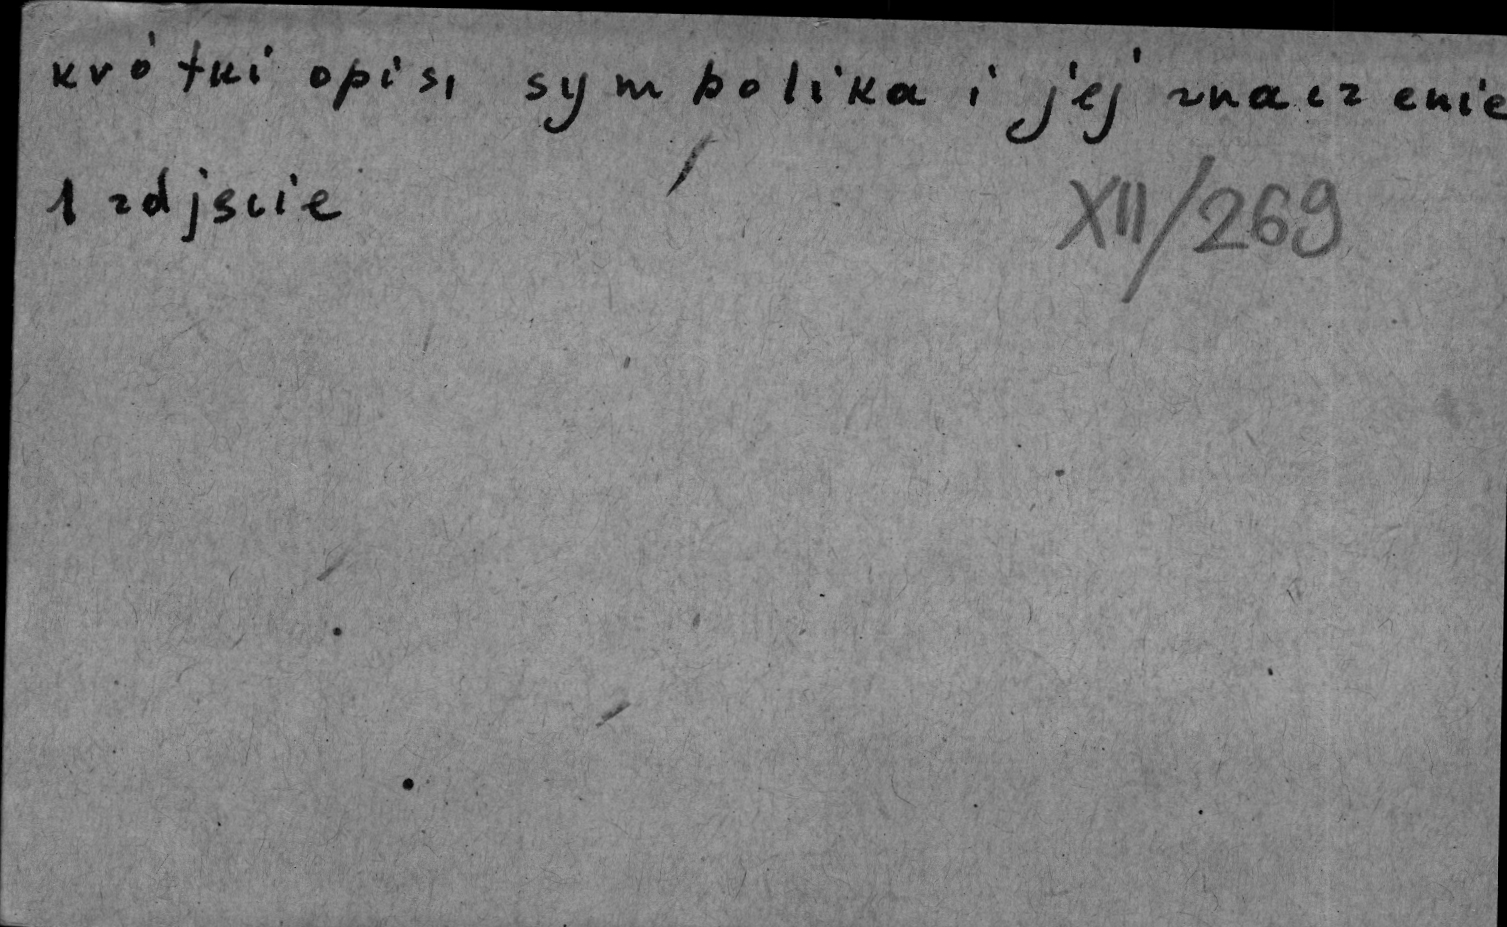 krótki opis, symbolika i jej znaczenie
1 zdjscie
XII/269